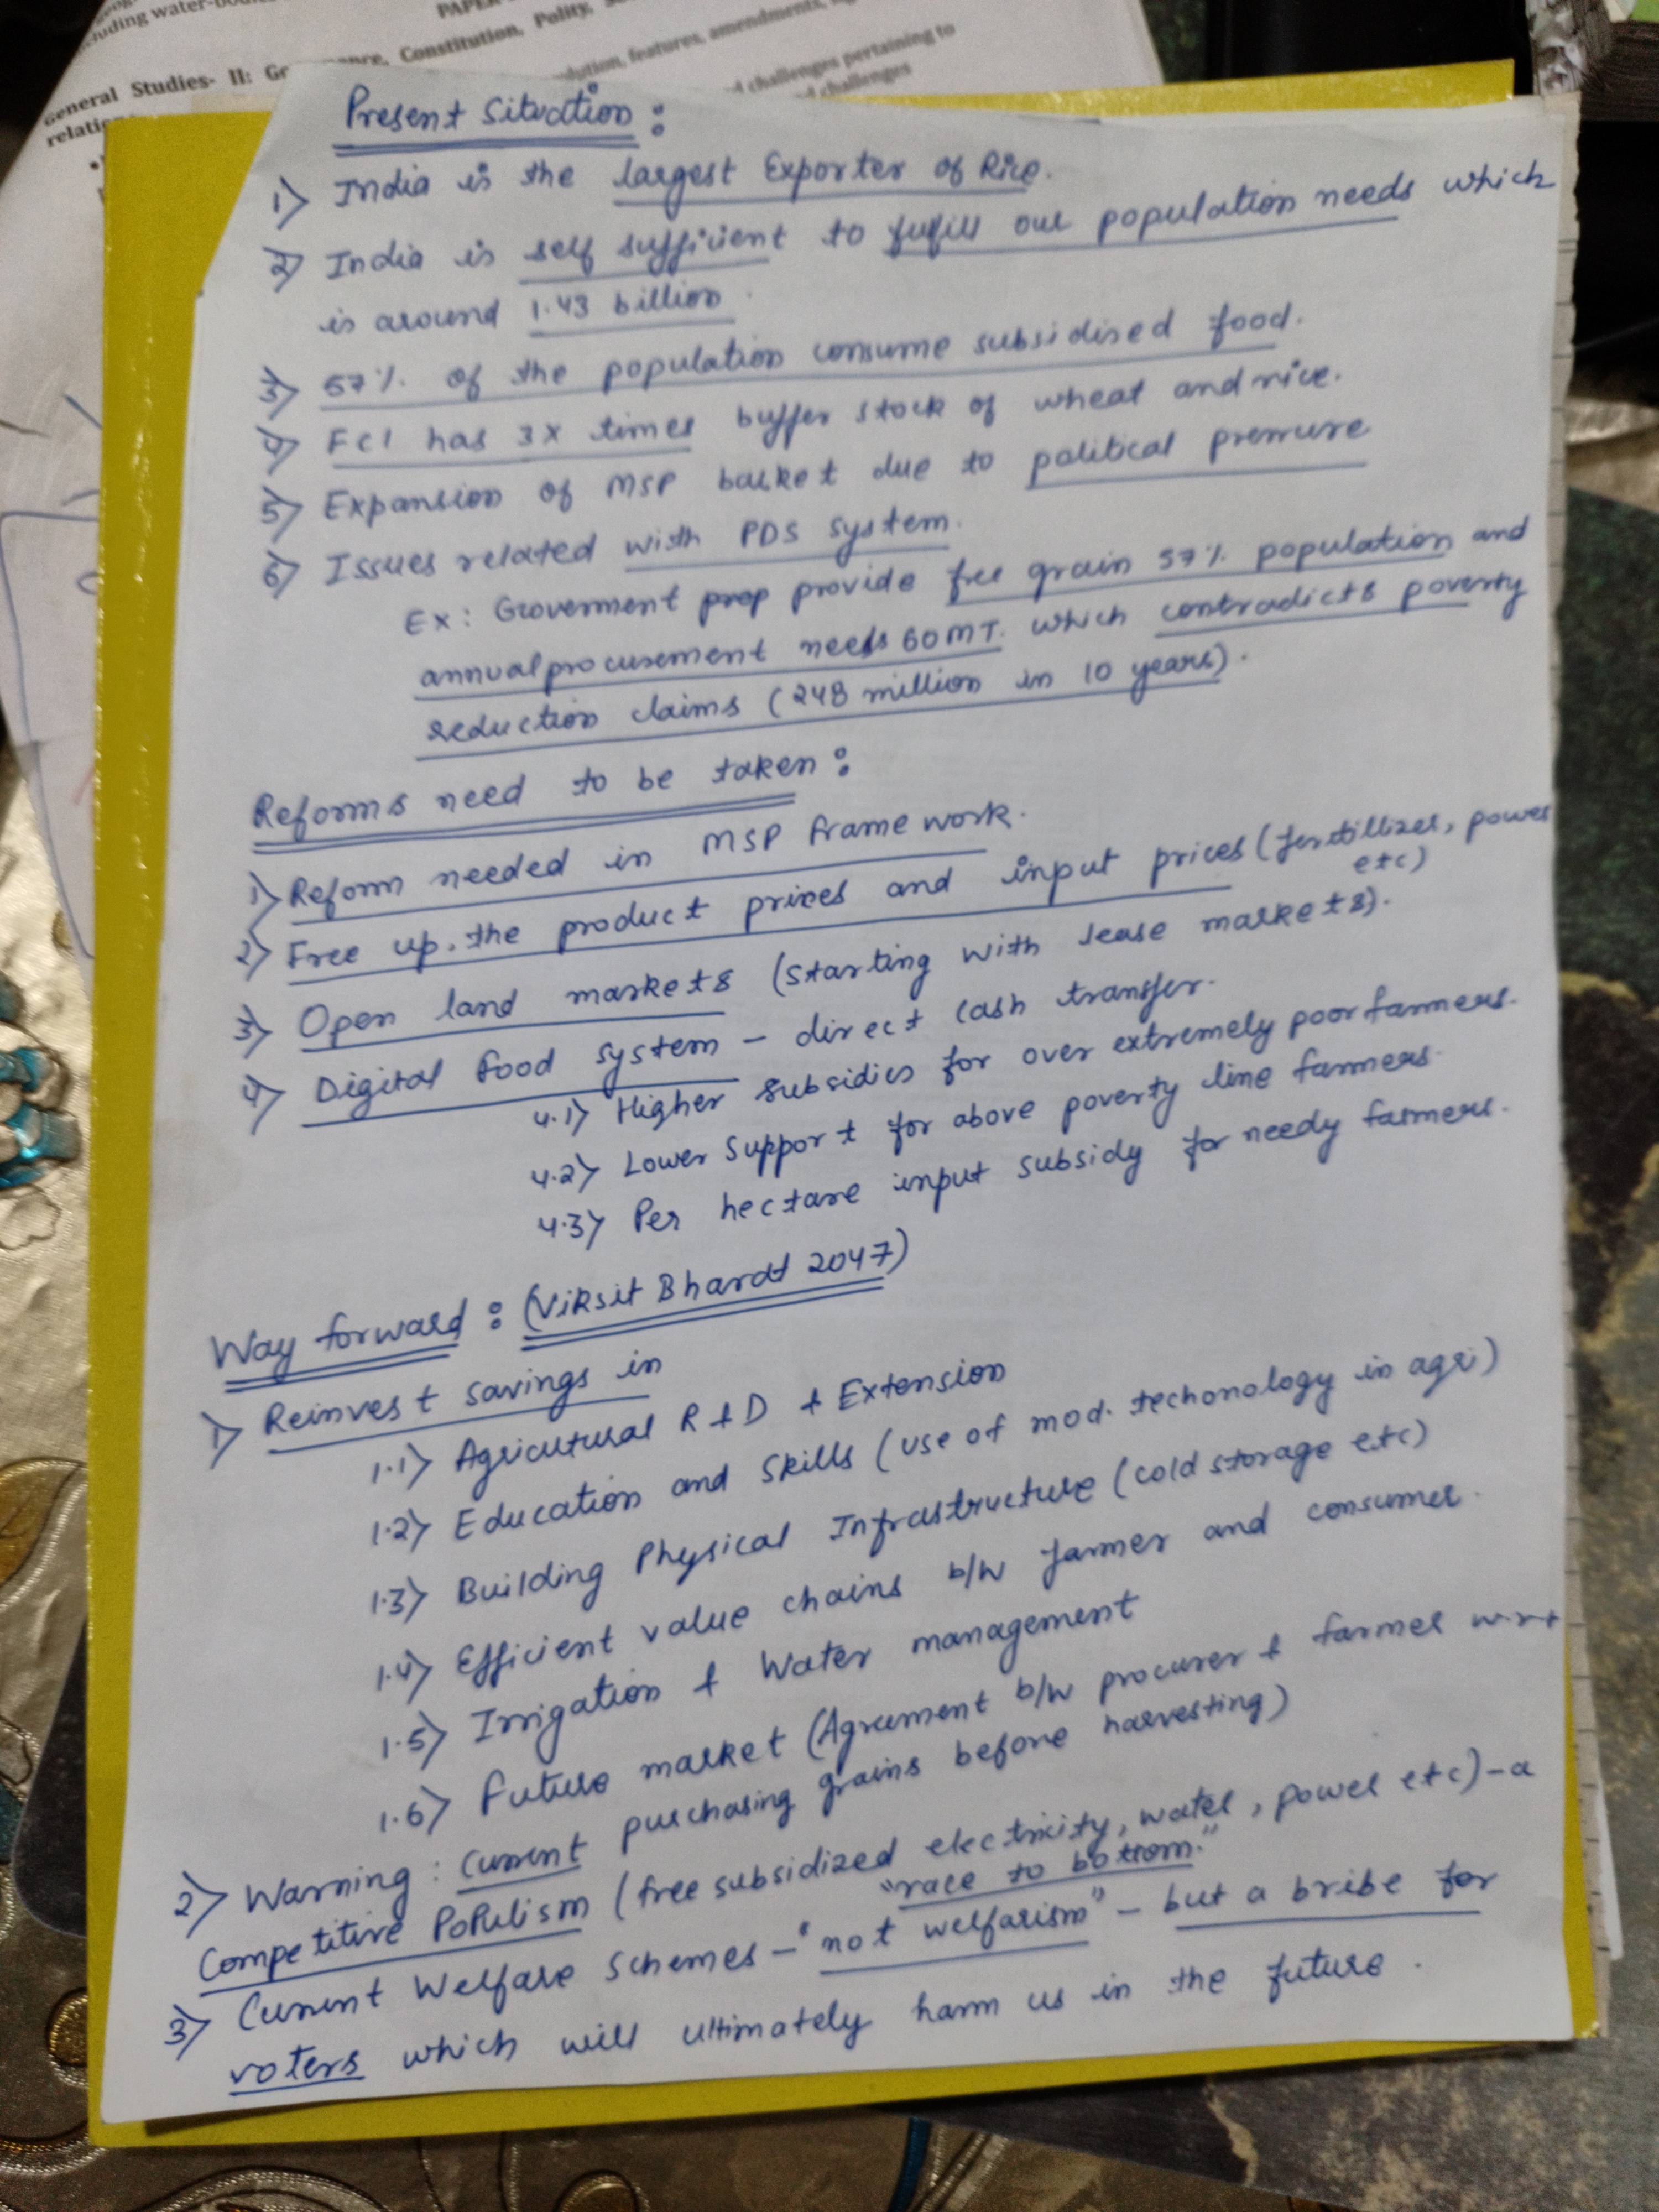 cluding water-bodies
PAPER
General Studies- II: Governance, Constitution, Polity,
relation
olution, features, amendments,
d challenges pertaining to
d challenges
Present Situation :
1) India is the largest Exporter of Rice.
2) India is self sufficient to fulfill our population needs which
is around 1.43 billion.
3) 57% of the population consume subsidised food.
4) FCI has 3X times buffer stock of wheat and rice.
5) Expansion of MSP basket due to political pressure
6) Issues related with PDS system.
Ex: Government prop provide free grain 57% population and
annual procurement needs 60MT. which contradicts poverty
reduction claims (248 million in 10 years).
Reforms need to be taken :
1) Reform needed in MSP framework.
2) Free up. the product prices and input prices (fertillizer, power
etc)
3) Open land markets (starting with lease markets).
4) Digital food system - direct cash transfer.
4.1) Higher subsidies for over extremely poor farmers.
4.2) Lower Support for above poverty line farmers.
4.3) Per hectare input subsidy for needy farmers.
Way forward : (Viksit Bharat 2047)
1) Reinvest savings in
1.1) Agricutural R & D & Extension
1.2) Education and Skills (use of mod. techonology in agri)
1.3) Building Physical Infrastructure (cold storage etc)
1.4) Efficient value chains b/w farmer and consumer.
1.5) Irrigation & Water management
1.6) Future market (Agreement b/w procurer & farmer w.r.t
purchasing grains before harvesting)
2) Warning : Current
Competitive Populism (free subsidized electricity, water, power etc) - a
"race to bottom."
3) Current Welfare schemes - "not welfarism" - but a bribe for
voters which will ultimately harm us in the future.